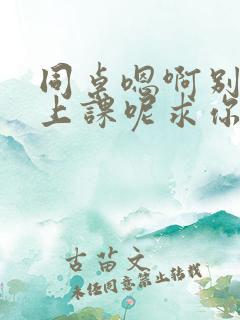 同桌嗯啊别
上課呢求你
古苗文
未经同意禁止转载